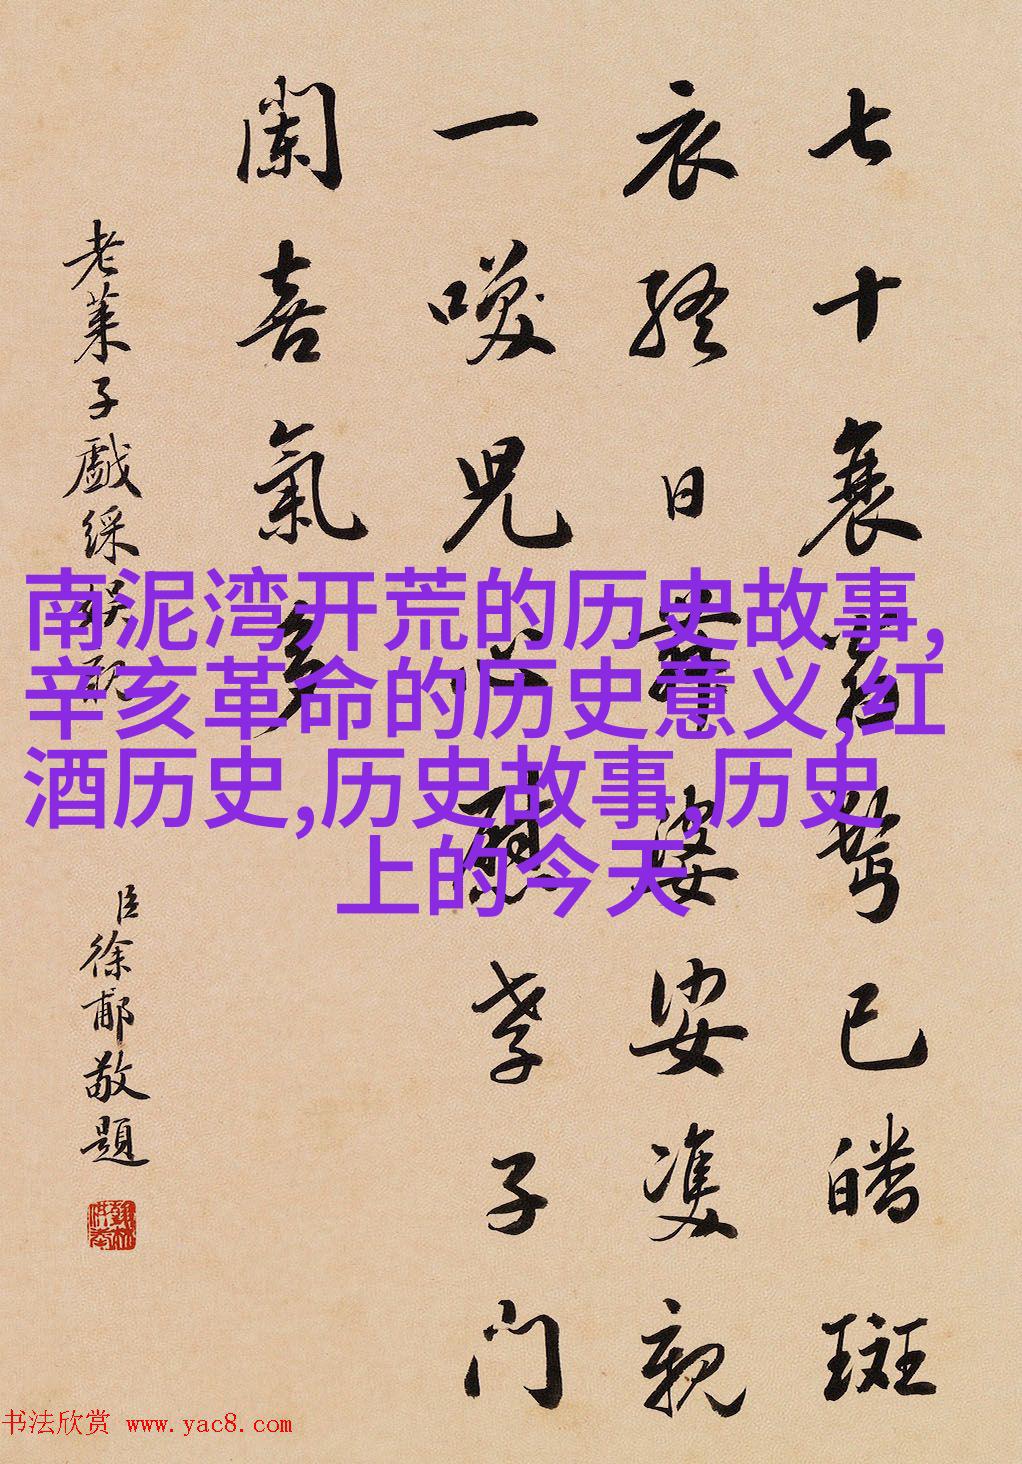 七十衰翁鬢已皤斑
衣終日舞婆娑雙親
一咲兒心慰孝子門
闌喜氣多
老萊子戲綵娛親
臣徐郙敬題
南泥湾开荒的历史故事,
辛亥革命的历史意义,红
酒历史,历史故事,历史
上的今天
书法欣赏 www.yac8.com